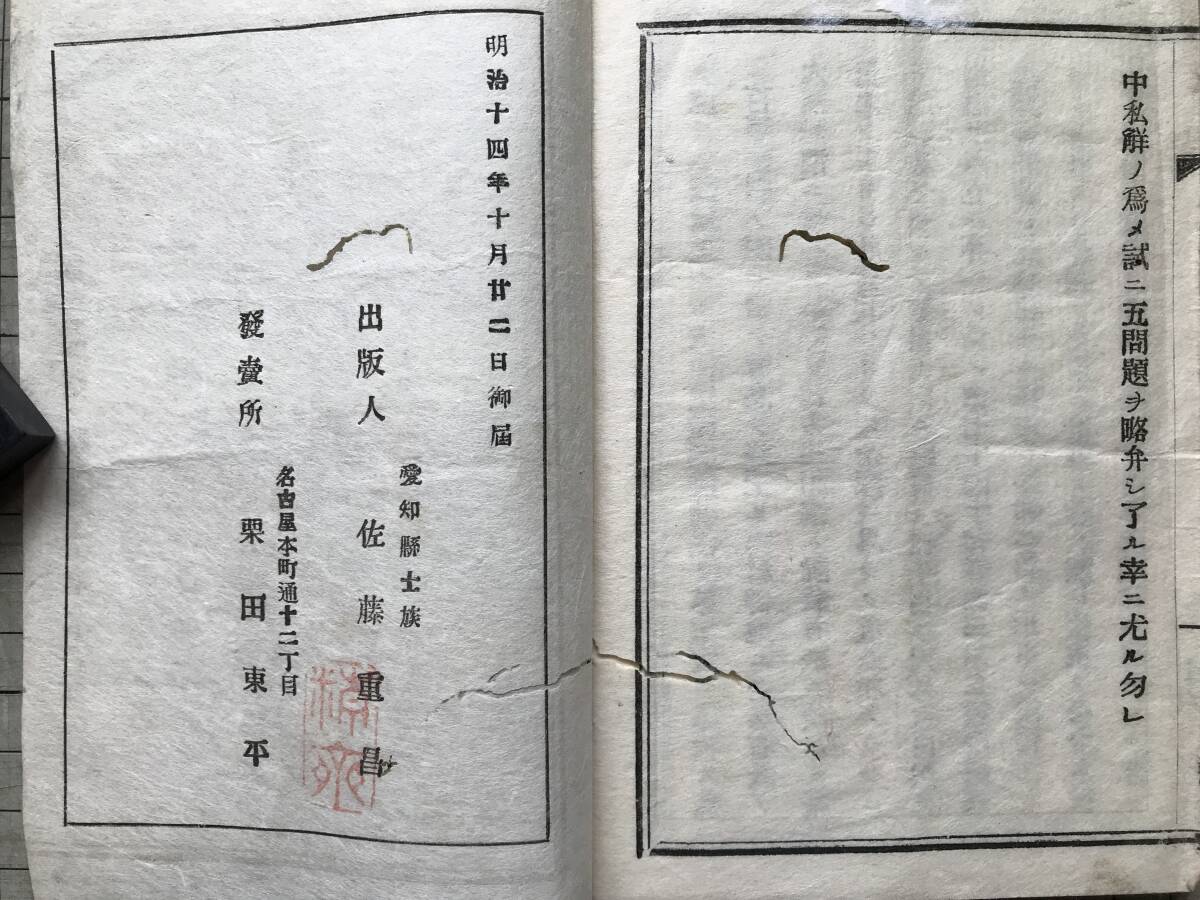 中私解ノ爲メ試ニ五問題ヲ略弁シ了ル幸ニ尤ル勿レ
明治十四年十月廿二日御屆
愛知縣士族
出版人 佐藤重昌
名古屋本町通十二丁目
發賣所 栗田東平